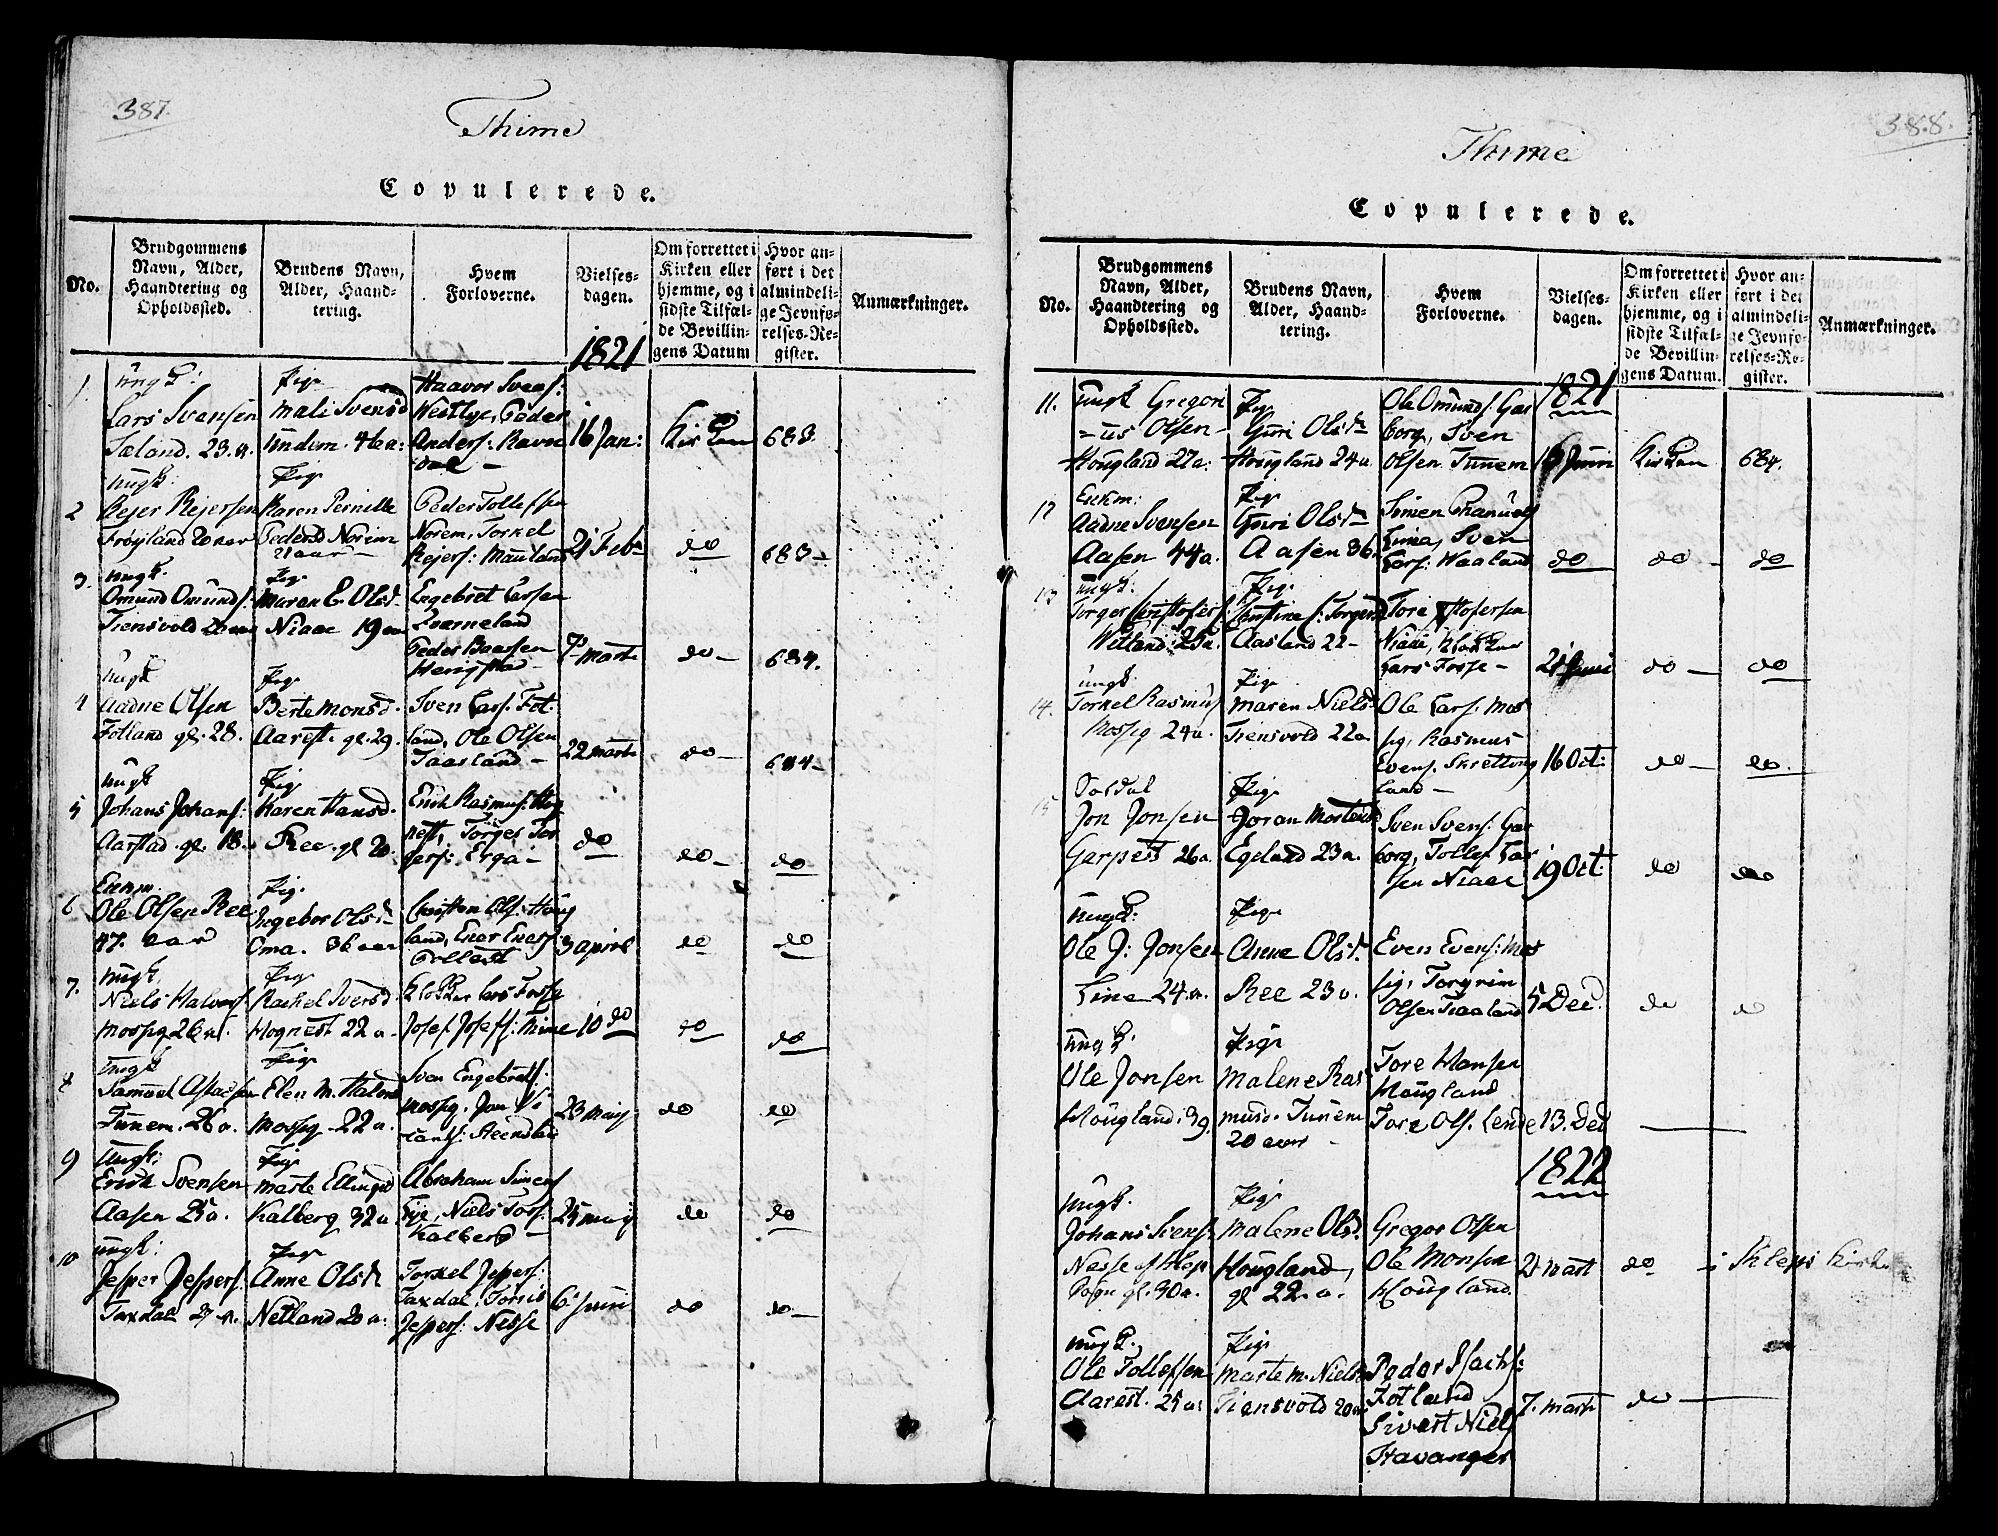 387.
Thime
Copulerede.
No.
Brudgommens Navn, Alder, Haandtering og Opholdssted.
Brudens Navn, Alder, Haandtering.
Hvem Forloverne.
Vielsesdagen.
Om forrettet i Kirken eller hjemme, og i sidste Tilfælde Bevillingens Datum
Hvor anført i det almindelige Jevnførelses-Register.
Anmærkninger.
1821
1.
ungk:
Lars Svensen
Sæland. 23. a.
Pige
Mali Svensd
Undem. 46 a:
Haavor Svens:
Westlye, Peder
Anders: Ravn
dal —
16 Jan:
Kirken
683
2
ungk:
Rejer Rejersen
Frøyland 20 aar
Pige
Karen Pernille
Pedersd Norim
21 aar —
Peder Tollefsen
Norem, Torkel
Rejers: Mauland
21 Feb
do
683 —
3.
ungk.
Omund Omunds:
Tiensvold
Pige
Maren E. Olsd.
Niaae 19 aar
Engebret Larsen
Qværneland
Peder Baarsen
Herigstad —
7 Marti
do —
684.
4
ungk
Aadne Olsen
Fotland gl. 28.
Pige
Berte Monsd.
Aarest. gl. 29.
Sven Lars. Fot-
land, Ole Olsen
Taarland —
22 Marti
do —
684 —
5
ungk
Johans Johans:
Aarstad. gl. 18.
Pige
Karen Hansd.
Ree. gl 20.
Erik Rasmus: Hog
nest, Torges Tor
gers: Erga —
do
do —
do
6
Enkm.
Ole Olsen Ree
47. aar
Pige
Ingebor Olsd.
Oma. 36 aar
Christen Ols: Houg
land, Ener Eners
Tollest
3 april
do
do
7.
ungk.
Niels Halvors.
Mossig 26 a.
Pige
Rachel Iversd.
Hognest 22 a.
Klokker Lars Fosse
Josef Josefs: Time
10 do
do
do
8
ungk
Samuel Astadsen
Tunem. 26 a.
Pige
Elen M. Halvord
Mossig 22 a.
Sven Engebrets:
Mossig, Jan
23 maij
do
do
9
Ungk:
Erik Svensen
Aasen 25 a.
Pige
Marte Ellingsd
Kalberg 32 a
Abraham Simens
Lye, Niels Tors:
Kalberg —
25 maij
do
do
10
ungk:
Jesper Jespers:
Taxdal 27 a.
Pige
Anne Olsd.
Netland 20 a:
Torkel Jespers:
Taxdal, Torris
Jespers: Nesse
6 Juni
do
do —
388.
Thime
Copulerede.
No.
Brudgommens Navn, Alder, Haandtering og Opholdssted.
Brudens Navn, Alder, Haandtering.
Hvem Forloverne.
Vielsesdagen.
Om forrettet i Kirken eller hjemme, og i sidste Tilfælde Bevillingens Datum.
Hvor anført i det almindelige Jevnførelses-Register.
Anmærkninger.
1821
11.
Ungk Gregori
=us Olsen —
Hougland 27 a.
Pige
Guri Olsd.
Hougland 24 a
Ole Omunds: Gar
borg, Sven
Olsen Tunem
16 Juni
Kirken
684.
12
Enkm:
Aadne Svensen
Aasen 44 a.
Pige
Guri Olsd.
Aasen 36.
Simen
Lima, Sven
Lars: Waaland
do
do —
do
13
ungk:
Torger Cristofers:
Wetland: 25 a
Pige
Cristine s: Torgersd
Aasland 22 —
Tore Stofersen
Niaae, Klokker
Lars Fosse —
21 Juni
do —
do
14.
ungk.
Torkel Rasmus
Mossig 24 a.
Pige
Maren Nielsd
Tiensvold 22 a
Ole Lars. Mos
sig, Rasmus
Evens. Skretting
land —
16 Oct:
do —
do.
15
Soldat
Jon Jonsen
Garpest 26 a.
Pige
Joran Mortensd
Egeland 23 a.
Sven Svens. Gar
borg, Tollef Lar
sen Niaae
19 Oct:
do
do
ungk:
Ole J: Jonsen
Line 24 a.
Pige
Anne Olsd.
Ree 23 a.
Even Evens: Mos
sig, Torgrim
Olsen Traaland
5 Dec.
do
do
ungk.
Ole Jonsen
Hougland. 39.
Pige
Malene Ras
musd. Tunem
20 aar —
Tore Hansen
Hougland
Tore Ols. Lende
13. Dec
1822
ungk.
Johans Svens.
Nesse af Klep
Sogn gl. 30 a.
Pige
Malene Olsd.
Hougland,
gl 22. a.
Gregor Olsen
Ole Monsen
Hougland.
2 Mart
do
i Kleps Kirke
ungk.
Ole Tollefsen
Aarest. 25 a:
Pige
Marte M. Nielsd
Tiensvold 20 aar
Peder Isachs:
Fotland
Sivert Niels
Stavanger
7. Marti
do —